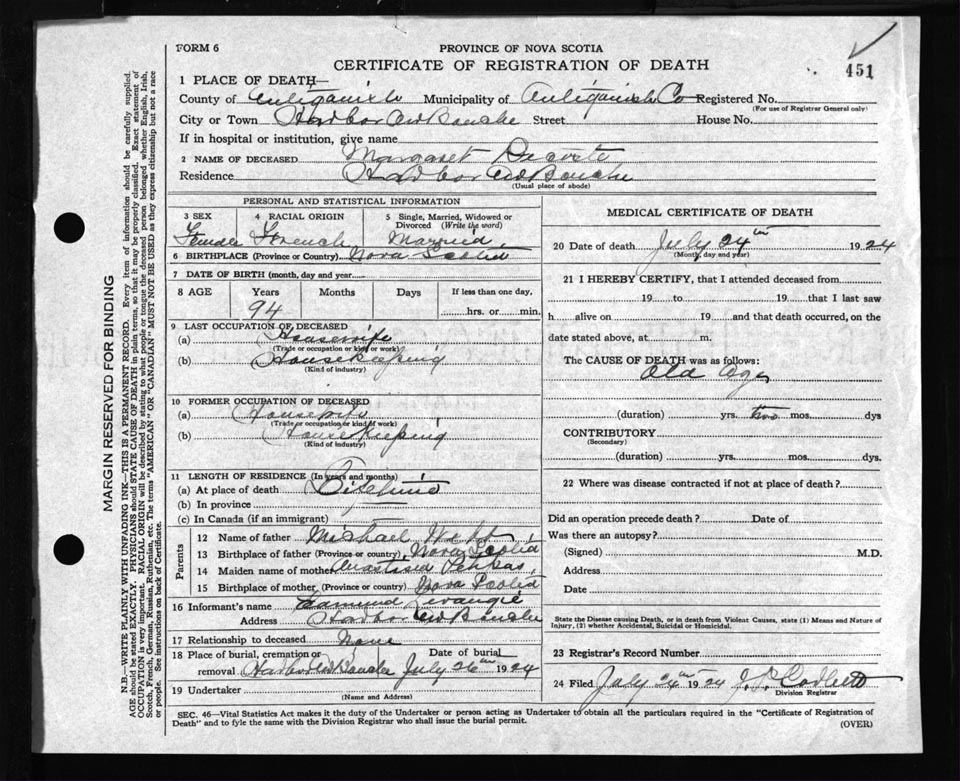 FORM 6
PROVINCE OF NOVA SCOTIA
CERTIFICATE OF REGISTRATION OF DEATH
451
1 PLACE OF DEATH—
County of Antigonish Municipality of Antigonish Co Registered No.
(For use of Registrar General only)
City or Town Harbor Au Bouche Street House No.
If in hospital or institution, give name
2 NAME OF DECEASED Margaret Decoste
Residence Harbor Au Bouche
(Usual place of abode)
PERSONAL AND STATISTICAL INFORMATION
3 SEX 4 RACIAL ORIGIN 5 Single, Married, Widowed or Divorced (Write the word)
Female French Married
6 BIRTHPLACE (Province or Country) Nova Scotia
7 DATE OF BIRTH (month, day and year)
8 AGE Years Months Days If less than one day,
94 hrs. or min.
9 LAST OCCUPATION OF DECEASED
(a) Housewife
(Trade or occupation or kind of work)
(b) Housekeeping
(Kind of industry)
10 FORMER OCCUPATION OF DECEASED
(a) Housewife
(Trade or occupation or kind of work)
(b) Housekeeping
(Kind of industry)
11 LENGTH OF RESIDENCE (In years and months)
(a) At place of death Lifetime
(b) In province
(c) In Canada (if an immigrant)
Parents
12 Name of father Michael
13 Birthplace of father (Province or country) Nova Scotia
14 Maiden name of mother
15 Birthplace of mother (Province or country) Nova Scotia
16 Informant's name Levangie
Address Harbor Au Bouche
17 Relationship to deceased None
18 Place of burial, cremation or removal Harbor Au Bouche Date of burial July 26th 1924
19 Undertaker
(Name and Address)
MEDICAL CERTIFICATE OF DEATH
20 Date of death July 24th 1924
(Month, day and year)
21 I HEREBY CERTIFY, that I attended deceased from
19 to 19 that I last saw
h alive on 19 and that death occurred, on the
date stated above, at m.
The CAUSE OF DEATH was as follows:
Old Age
(duration) yrs. two mos. dys
CONTRIBUTORY
(Secondary)
(duration) yrs. mos. dys.
22 Where was disease contracted if not at place of death?
Did an operation precede death? Date of
Was there an autopsy?
(Signed) M.D.
Address
Date
State the Disease causing Death, or in death from Violent Causes, state (1) Means and Nature of
Injury, (2) whether Accidental, Suicidal or Homicidal.
23 Registrar's Record Number
24 Filed July 24th 1924 J. P. Corbett
Division Registrar
SEC. 46—Vital Statistics Act makes it the duty of the Undertaker or person acting as Undertaker to obtain all the particulars required in the "Certificate of Registration of
Death" and to fyle the same with the Division Registrar who shall issue the burial permit.
(OVER)
MARGIN RESERVED FOR BINDING
N.B.—WRITE PLAINLY WITH UNFADING INK—THIS IS A PERMANENT RECORD. Every item of information should be carefully supplied.
AGE should be stated EXACTLY. PHYSICIANS should STATE CAUSE OF DEATH in plain terms, so that it may be properly classified. Exact statement of
OCCUPATION is very important. RACIAL ORIGIN will be described by stating to what people or tongue the deceased person belonged, whether English, Irish,
Scotch, French, German, Russian, Ruthenian, etc. The terms "AMERICAN" OR "CANADIAN" MUST NOT BE USED as they express citizenship but not a race
or people. See instructions on back of Certificate.